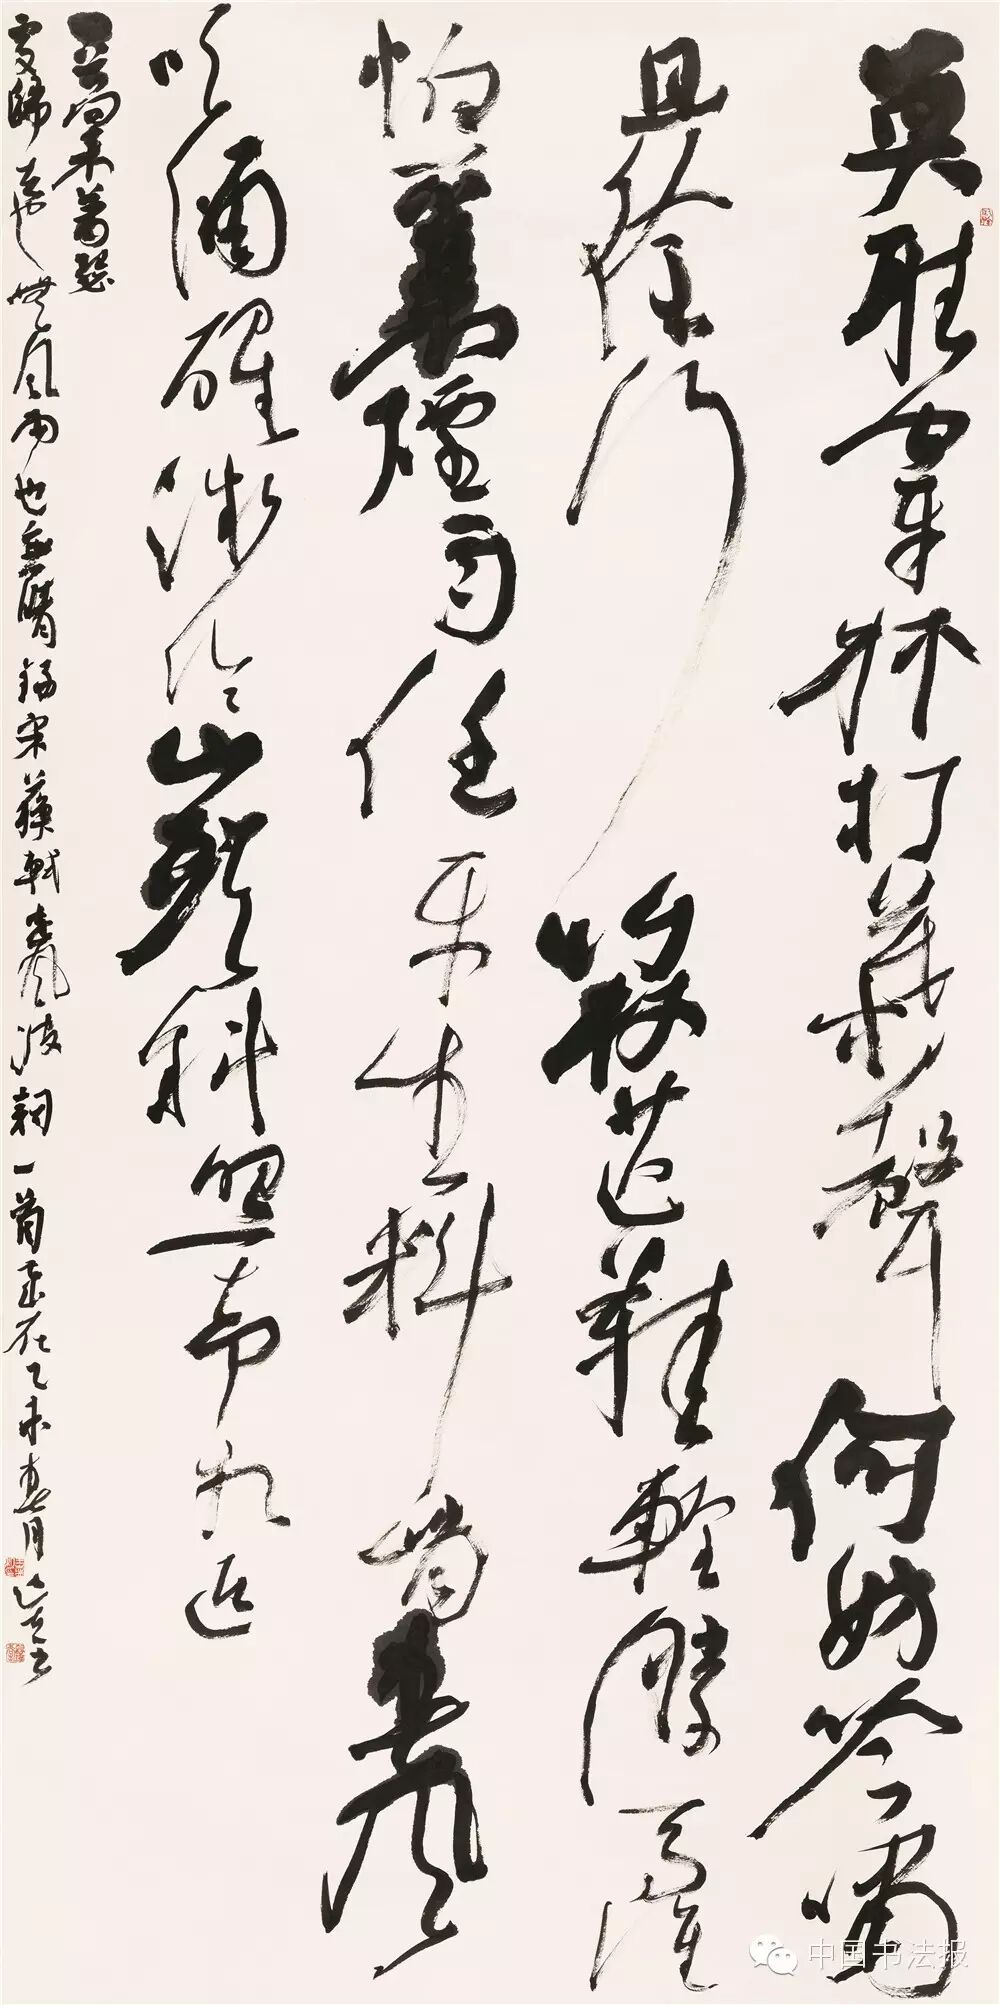 莫聽穿林打葉聲何妨吟嘯
且徐行竹杖芒鞋輕勝馬誰
怕一蓑煙雨任平生料峭春風
吹酒醒微冷山頭斜照卻相迎
回首向來蕭瑟
處歸去也無風雨也無晴錄宋蘇軾定風波詞一首歲在乙未春月
中国书法报